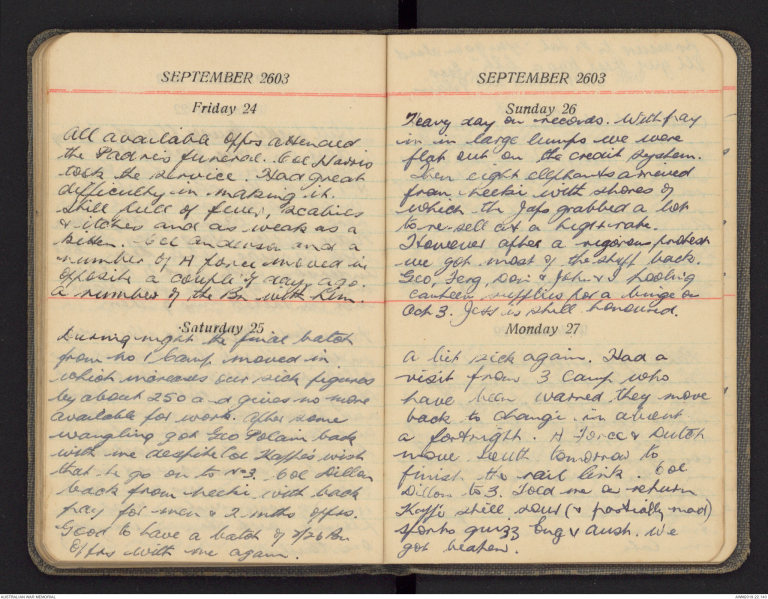 SEPTEMBER 2603
Friday 24
All available offrs attended
the Padre's funeral. Col Harris
took the service. Had great
difficulty in making it.
Still full of fever, scabies
& itches and as weak as a
kitten. Col Anderson and a
number of A Force moved in
opposite a couple of days ago.
A number of the Bn with him.
Saturday 25
During night the final batch
from No 1 Camp moved in
which increases our sick figures
by about 250 and gives no more
available for work. After some
wangling got Geo Polain back
with me despite Col Kappe's wish
that he go on to No 3. Col Dillon
back from Neeki with back
pay for men & 2 mths offrs.
Good to have a batch of 2/26 Bn
Offrs with me again.
SEPTEMBER 2603
Sunday 26
Heavy day on records. With pay
in in large lumps we were
flat out on the credit system.
Then eight elephants arrived
from Neeki with stores of
which the Japs grabbed a lot
to re-sell at a high rate.
However after a rigorous protest
we got most of the stuff back.
Geo, Ferg, Don & John & I pooling
canteen supplies for a binge on
Oct 3. Jess is still honoured.
Monday 27
A bit sick again. Had a
visit from 3 Camp who
have been warned they move
back to Change in about
a fortnight. A Force & Dutch
move South tomorrow to
finish the rail link. Col
Dillon to 3. Told me on return
Kappe still sour (& partially mad)
Sports quizz Eng v Aust. We
got beaten.
AUSTRALIAN WAR MEMORIAL